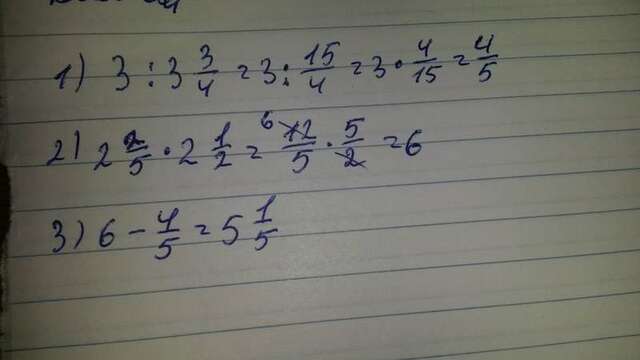 1) 3 : 3 3/4 = 3 : 15/4 = 3 · 4/15 = 4/5
2) 2 2/5 · 2 1/2 = 6 12/5 · 5/2 = 6
3) 6 - 4/5 = 5 1/5